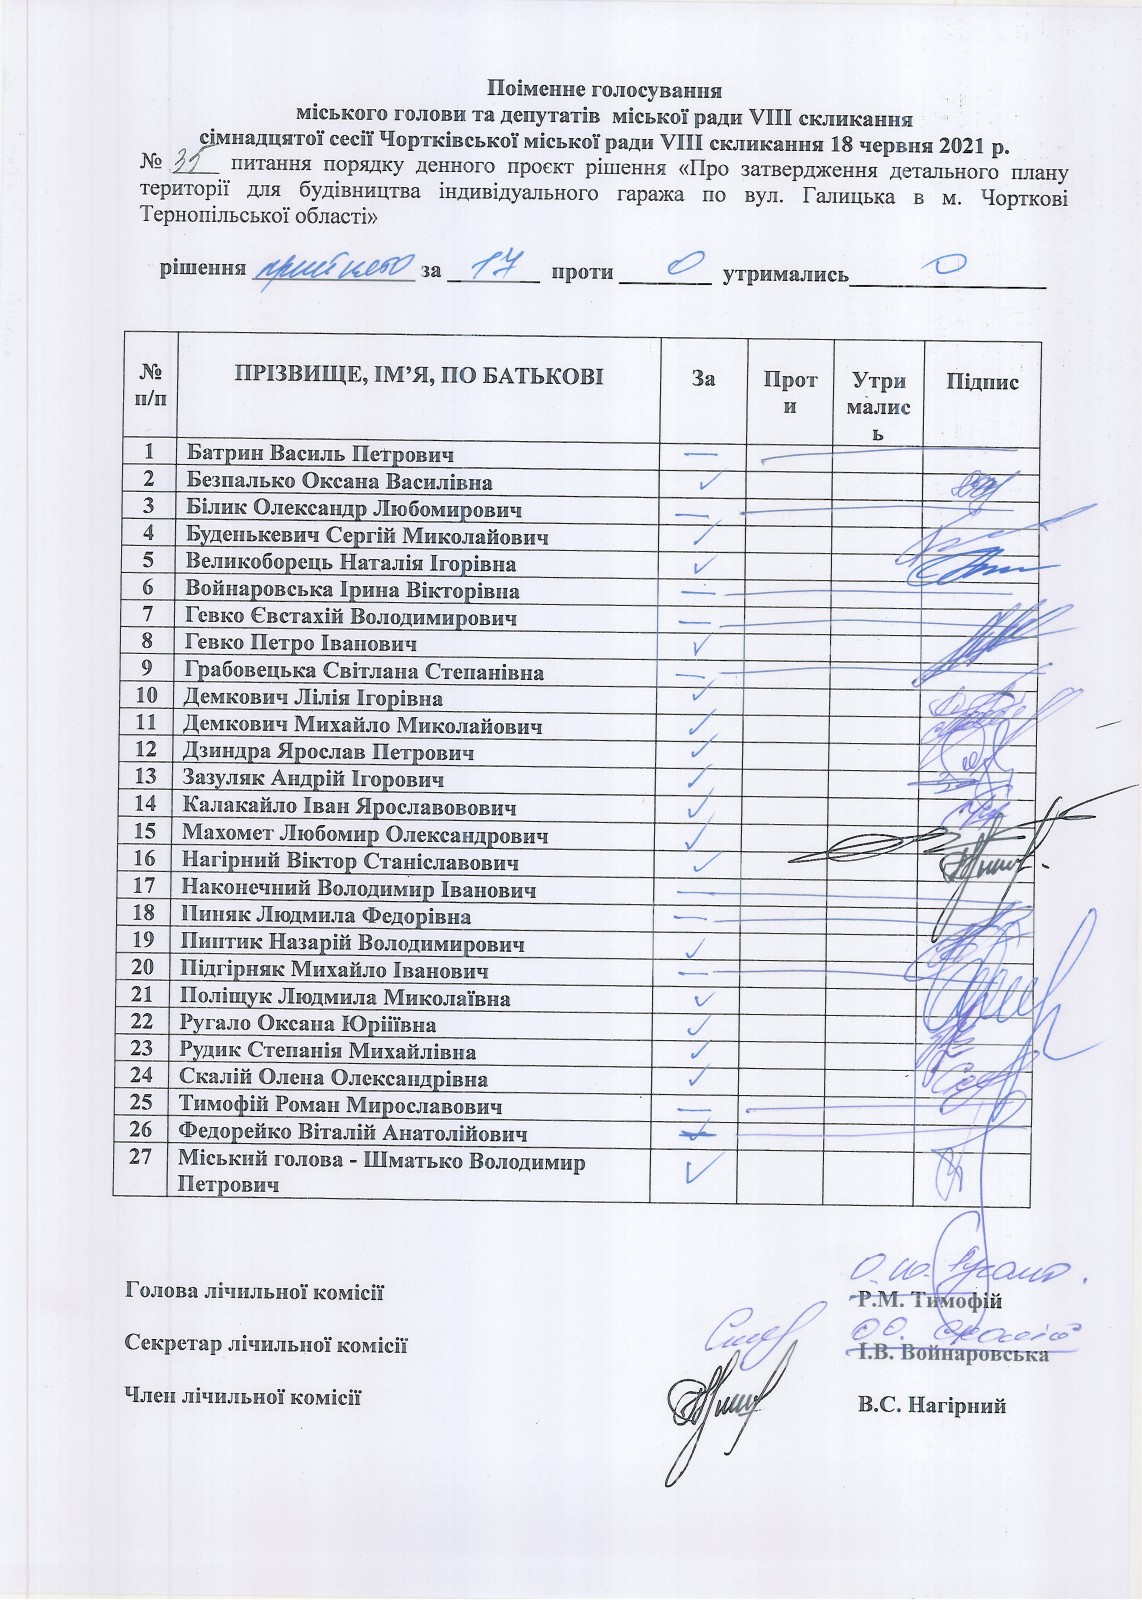 Поіменне голосування
міського голови та депутатів міської ради VIII скликання
сімнадцятої сесії Чортківської міської ради VIII скликання 18 червня 2021 р.
№ 35 питання порядку денного проєкт рішення «Про затвердження детального плану
території для будівництва індивідуального гаража по вул. Галицька в м. Чорткові
Тернопільської області»
рішення прийнято за 17 проти 0 утримались 0
№ п/п ПРІЗВИЩЕ, ІМ’Я, ПО БАТЬКОВІ За Проти Утрималась Підпис
1 Батрин Василь Петрович —
2 Безпалько Оксана Василівна ✓
3 Білик Олександр Любомирович —
4 Буденькевич Сергій Миколайович ✓
5 Великоборець Наталія Ігорівна ✓
6 Войнаровська Ірина Вікторівна —
7 Гевко Євстахій Володимирович —
8 Гевко Петро Іванович ✓
9 Грабовецька Світлана Степанівна —
10 Демкович Лілія Ігорівна ✓
11 Демкович Михайло Миколайович ✓
12 Дзиндра Ярослав Петрович ✓
13 Зазуляк Андрій Ігорович ✓
14 Калакайло Іван Ярославовович ✓
15 Махомет Любомир Олександрович ✓
16 Нагірний Віктор Станіславович ✓
17 Наконечний Володимир Іванович —
18 Пиняк Людмила Федорівна —
19 Пиптик Назарій Володимирович ✓
20 Підгірняк Михайло Іванович —
21 Поліщук Людмила Миколаївна ✓
22 Ругало Оксана Юріїївна ✓
23 Рудик Степанія Михайлівна ✓
24 Скалій Олена Олександрівна ✓
25 Тимофій Роман Мирославович —
26 Федорейко Віталій Анатолійович
27 Міський голова - Шматько Володимир
Петрович ✓
О.Ю. Ругало.
Голова лічильної комісії Р.М. Тимофій
О.О. Скалій
Секретар лічильної комісії І.В. Войнаровська
Член лічильної комісії В.С. Нагірний